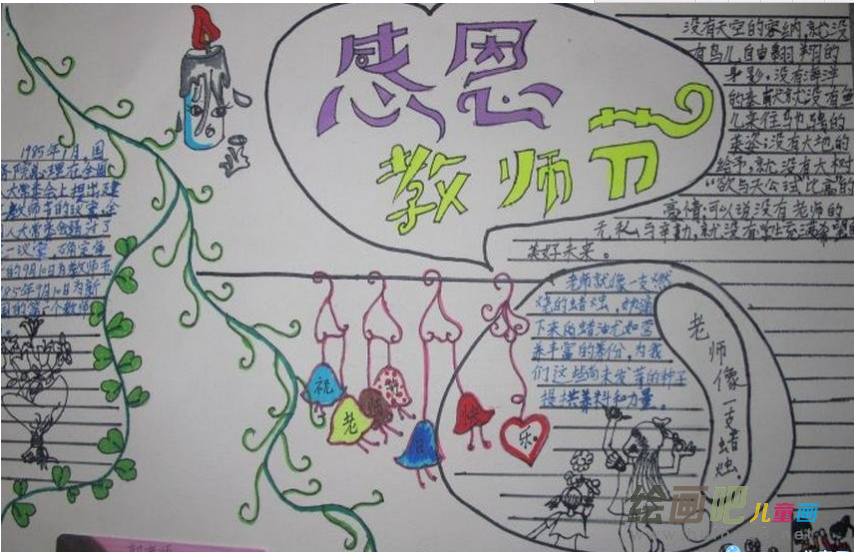 感恩
教师节
1985年1月,国
务院总理在全国
人大常委会上提出建
教师节的议案,全
人大常委会
议案,
的9月10日为教师节
85年9月10日为新
国的第一个教师
没有天空的容纳,就没
有鸟儿自由翱翔的
身影;没有海洋
的奉献就没有鱼
儿来往
没有大地的
给予,就没有大树
“欲与天公试比高”的
豪情;可以说没有老师的
无私与辛勤,就没有学生充满希望的
美好未来。
老师就像一支燃
烧的蜡烛,
下来的蜡油尤如营
养丰富的养份,为我
们这些尚未发芽的种子
提供养料和力量。
老师像一支蜡烛
祝
老
师
节
快
乐
绘画吧儿童画